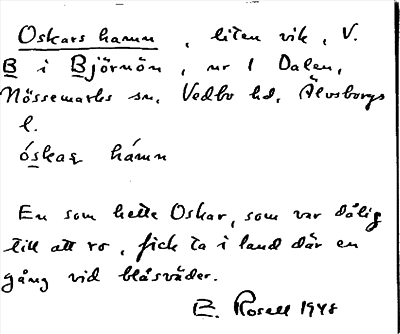 Oskars hamn, liten vik, V.
B i Björnön, nr 1 Dalen,
Nössemarks sn, Vedbo hd, Älvsborgs
l.
óskaṣ hámn
En som hette Oskar, som var dålig
till att ro, fick ta i land där en
gång vid blåsväder.
E. Rosell 1948